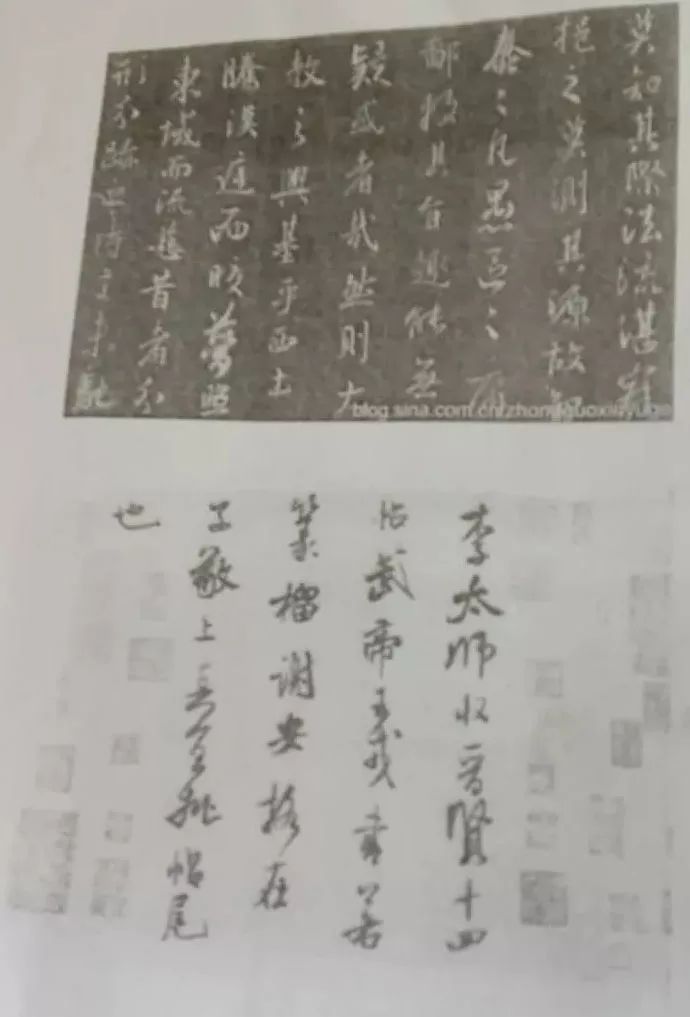 莫知其際法流湛寂
挹之莫測其源故知
蠢蠢凡愚區區庸
鄙投其旨趣能無
疑惑者哉然則大
教之興基乎西土
騰漢庭而皎夢照
東域而流慈昔者分
形分跡之時言未馳
李太師收晉賢十四
帖武帝王戎書若
篆籀謝安格在
子敬上真宜批帖尾
也